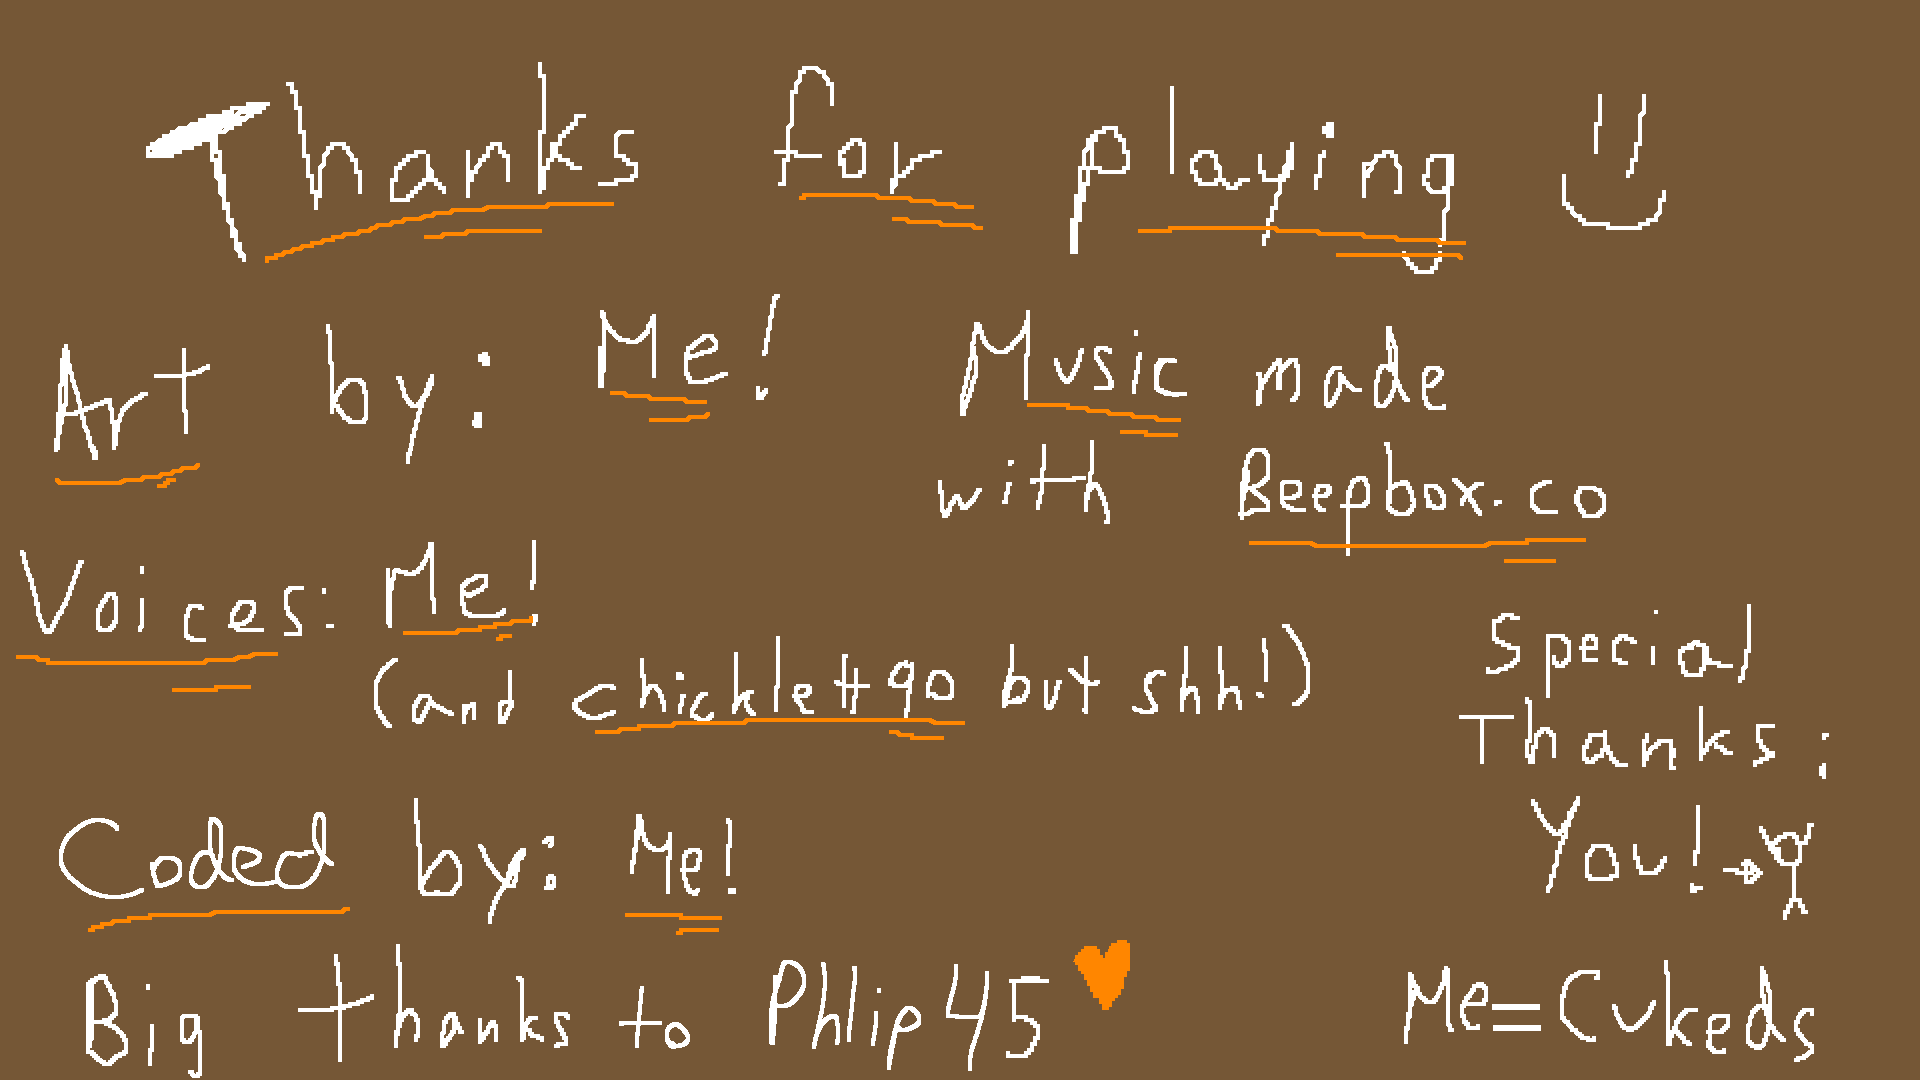 Thanks for playing
Art by: Me!
Music made
with Beepbox.co
Voices: Me!
(and chicklet90 but shh!)
Special
Thanks:
You!
Coded by: Me!
Big thanks to Phlip45
Me=Cukeds